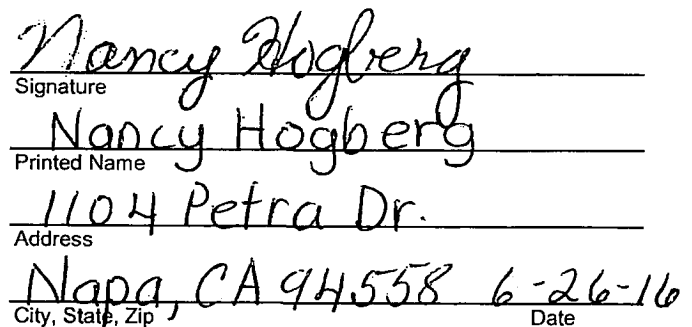 Nancy Hogberg
Signature
Nancy Hogberg
Printed Name
1104 Petra Dr.
Address
Napa, CA 94558 6-26-16
City, State, Zip Date